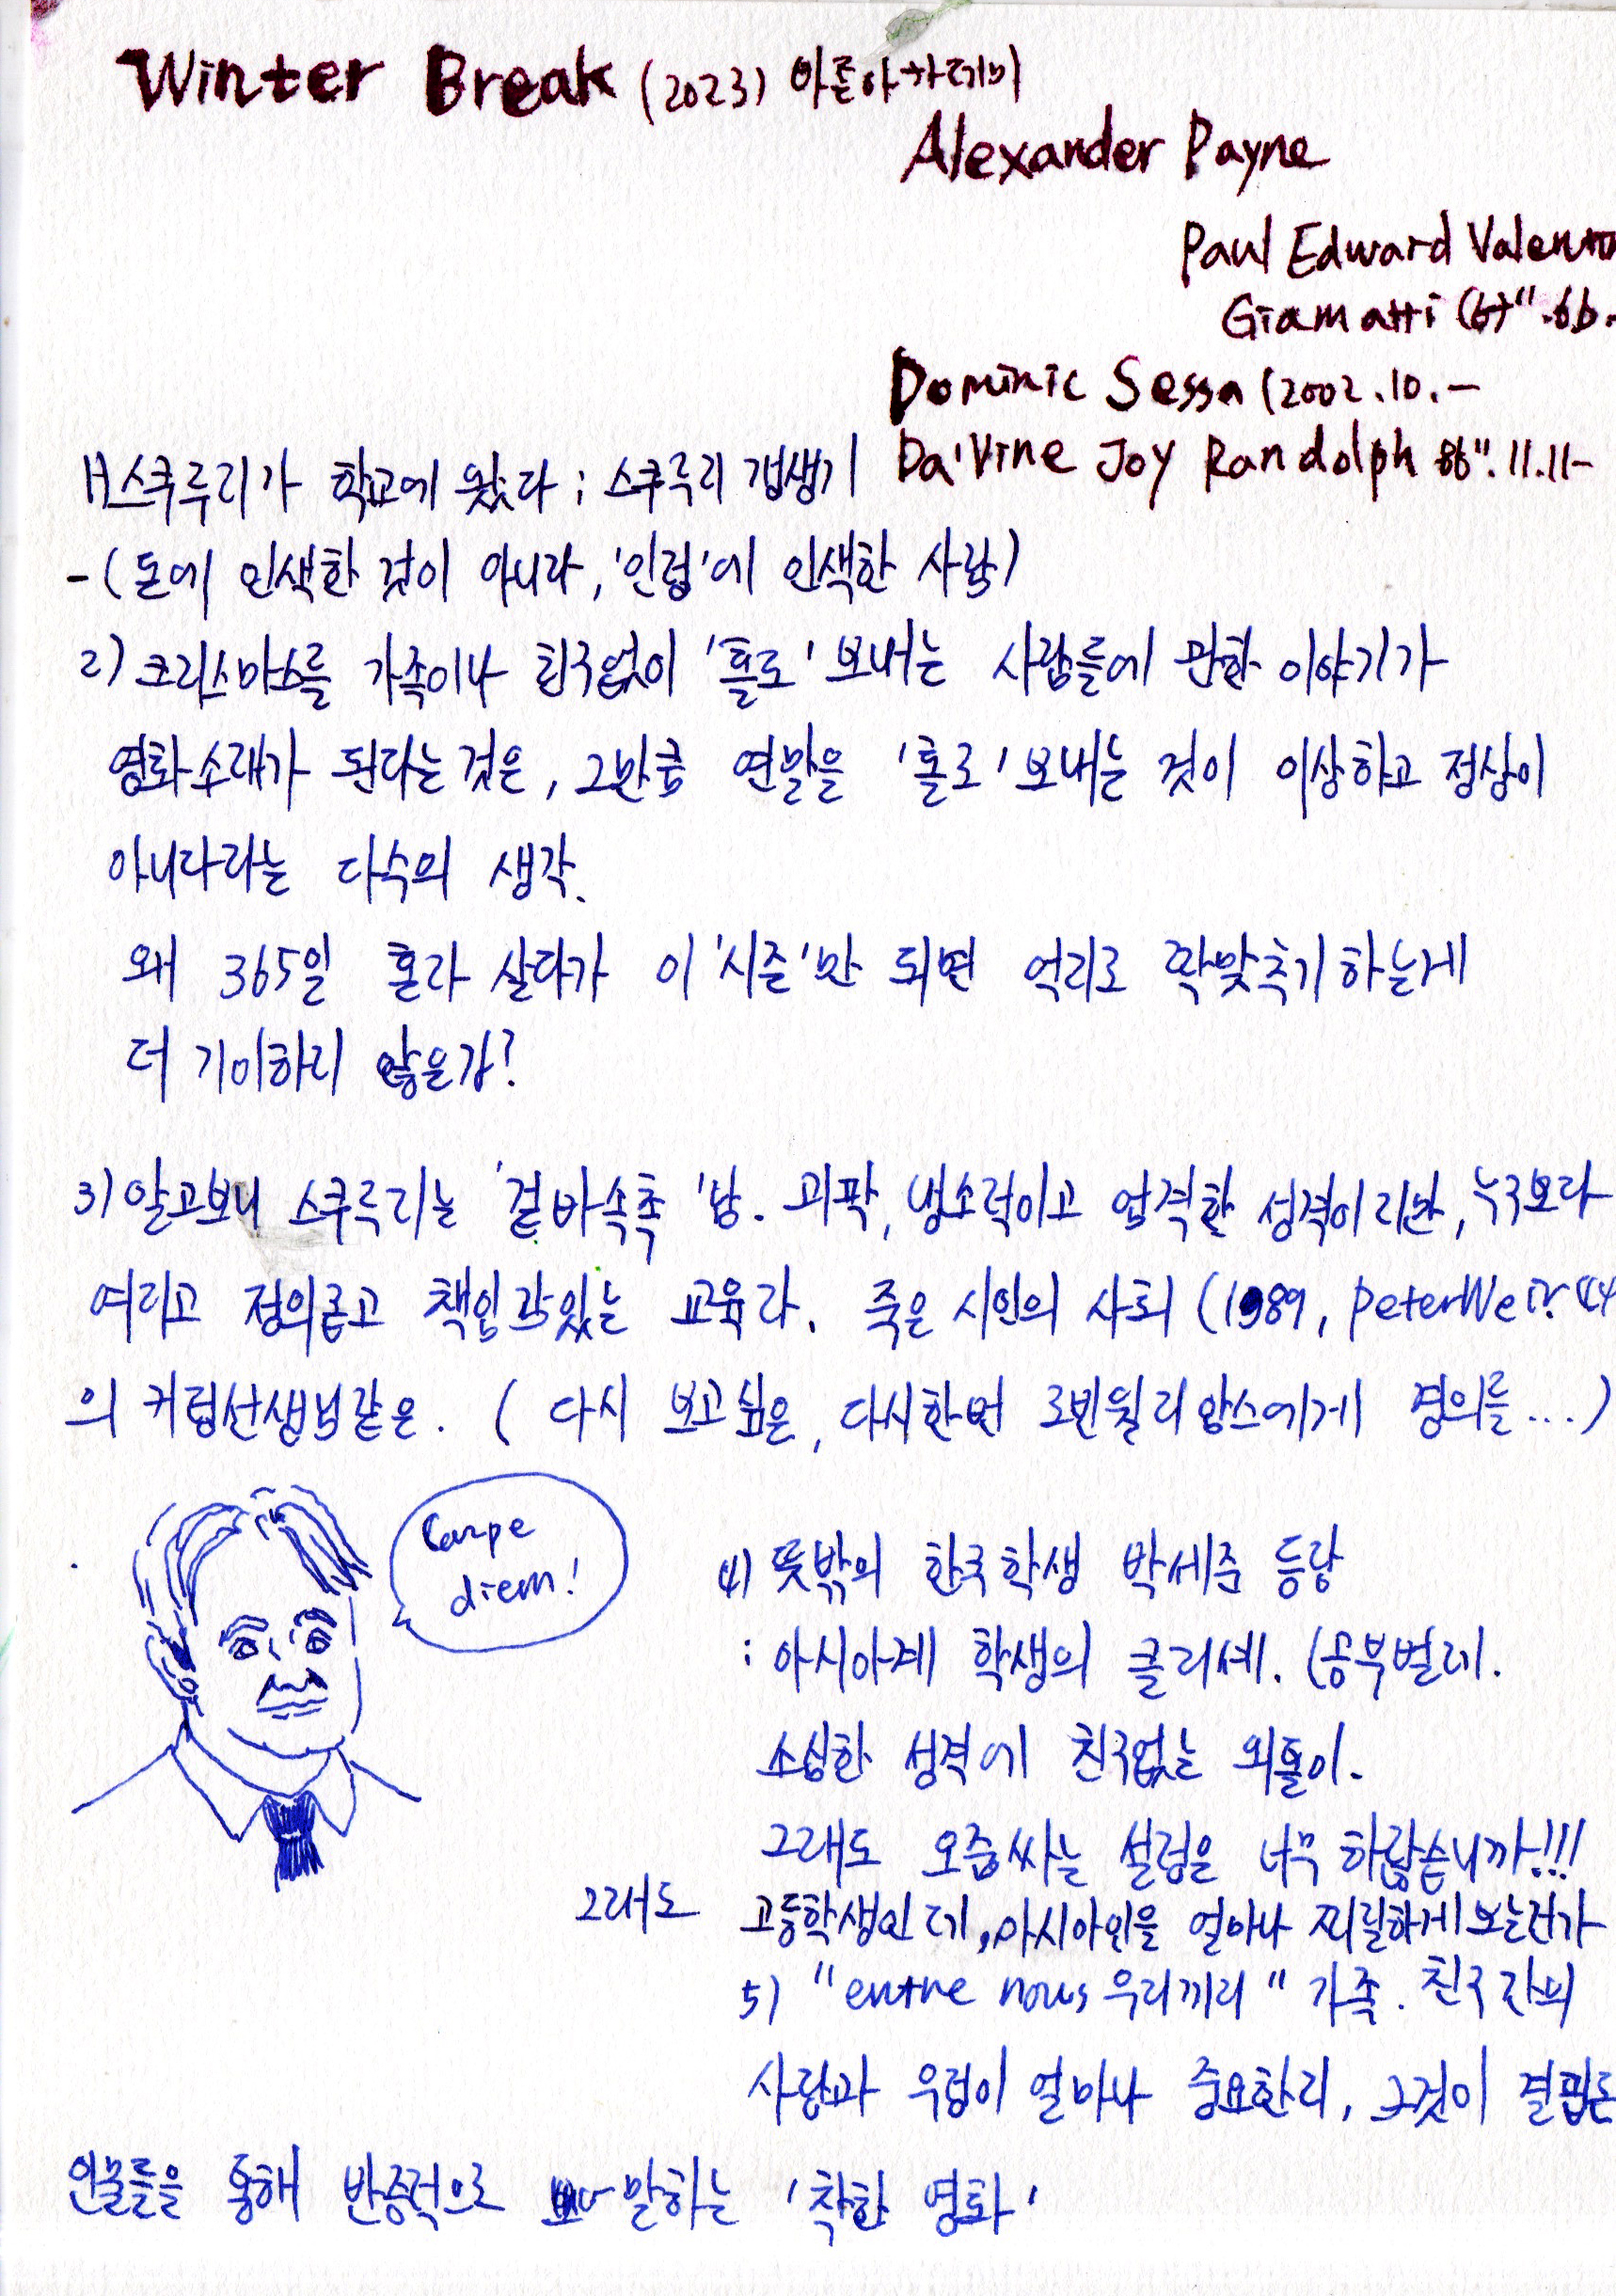 Winter Break (2023) 바른아카데미
Alexander Payne
Paul Edward Valentin
Giamatti (67".6.6.
Dominic Sessa (2002.10.-
Da'Vine Joy Randolph 86".11.11-
1) 스쿠루리가 학교에 왔다 ; 스쿠루리 갱생기
- (돈에 인색한 것이 아니라, '인정'에 인색한 사람)
2) 크리스마스를 가족이나 친구없이 '홀로' 보내는 사람들에 관한 이야기가
영화소재가 된다는 것은, 그만큼 연말을 '홀로' 보내는 것이 이상하고 정상이
아니다라는 다수의 생각.
왜 365일 혼자 살다가 이 '시즌'만 되면 억지로 짝맞추기하는게
더 기이하지 않은가?
3) 알고보니 스쿠루리는 '겉바속촉' 남. 괴팍, 냉소적이고 엄격한 성격이지만, 누구보다
여리고 정의롭고 책임감있는 교육자. 죽은 시인의 사회 (1989, Peter Weir 44
의 키팅선생님같은. ( 다시 보고싶은, 다시한번 로빈윌리암스에게 경의를...)
Carpe
diem!
4) 뜻밖의 한국학생 박세준 등장
: 아시아계 학생의 클리셰. (공부벌레.
소심한 성격에 친구없는 외톨이.
그래도 오줌싸는 설정은 너무 하잖습니까!!!
그래도 고등학생인데, 아시아인을 얼마나 찌질하게 보는건가
5) "entre nous 우리끼리" 가족. 친구간의
사랑과 우정이 얼마나 중요한지, 그것이 결핍된
인물들을 통해 반증적으로 말하는 '착한 영화'